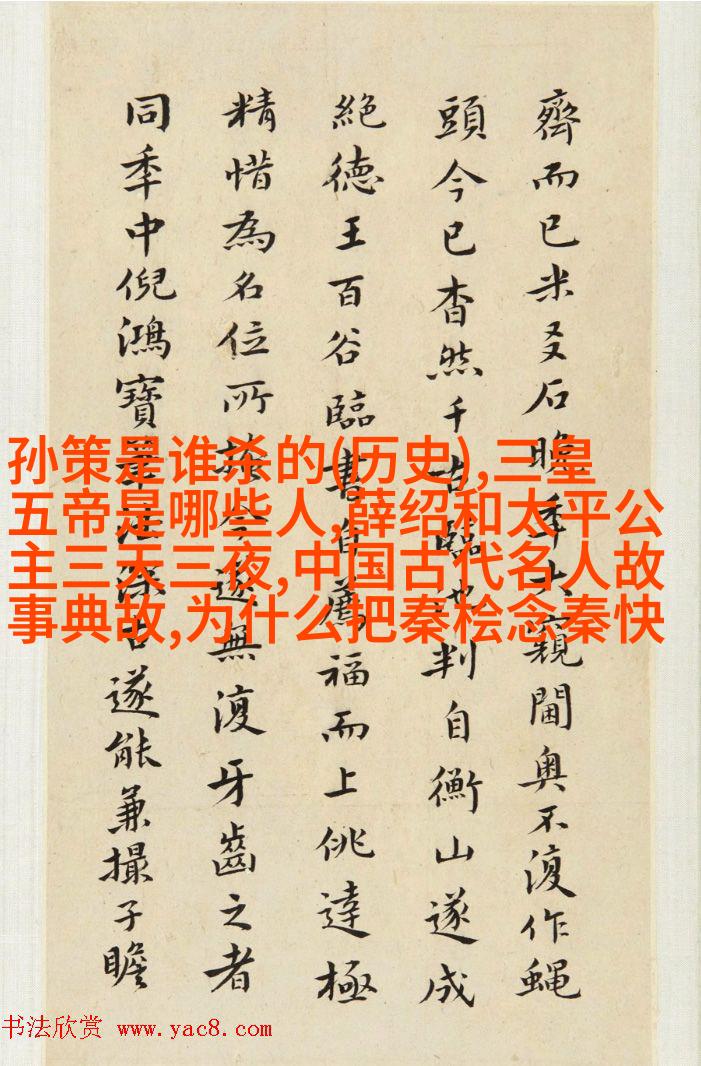 齊而已米友石晚年大窺閫奧不復作蝇
頭今已杳然千古臨池判自衡山遂成
絕德王百谷臨書自薦福而上佻達極
精惜為名位所掩今遂無復牙齒之者
同年中倪鴻寶筆法深古遂能兼撮子瞻
孙策是谁杀的(历史),三皇
五帝是哪些人,薛绍和太平公
主三天三夜,中国古代名人故
事典故,为什么把秦桧念秦快
书法欣赏 www.yac8.com